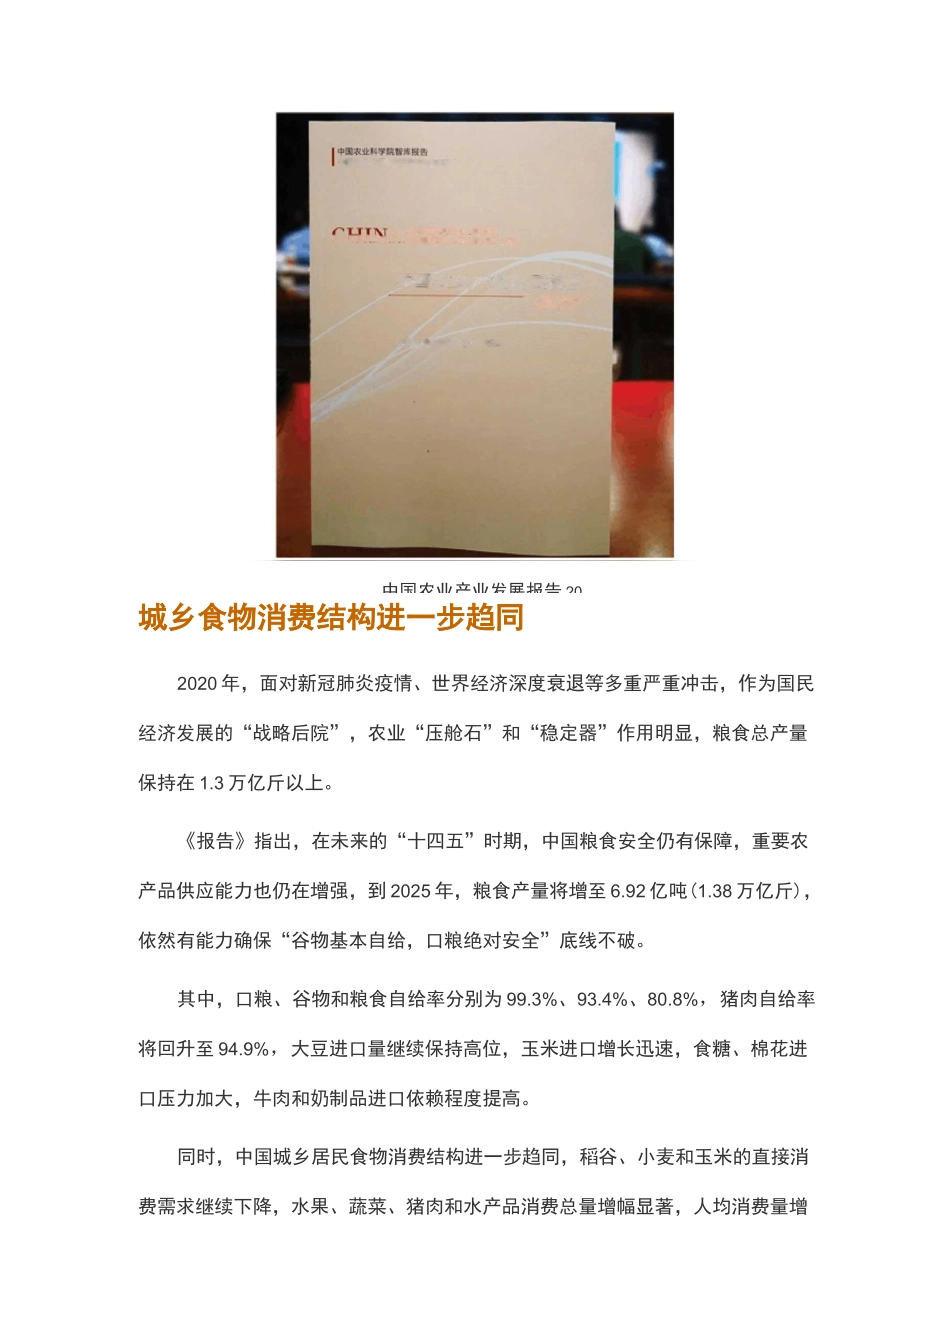 中国农业科学院智库报告
CHIN
中国农业产业发展报告 20
城乡食物消费结构进一步趋同
2020 年，面对新冠肺炎疫情、世界经济深度衰退等多重严重冲击，作为国民
经济发展的“战略后院”，农业“压舱石”和“稳定器”作用明显，粮食总产量
保持在 1.3 万亿斤以上。
《报告》指出，在未来的“十四五”时期，中国粮食安全仍有保障，重要农
产品供应能力也仍在增强，到 2025 年，粮食产量将增至 6.92 亿吨(1.38 万亿斤)，
依然有能力确保“谷物基本自给，口粮绝对安全”底线不破。
其中，口粮、谷物和粮食自给率分别为 99.3%、93.4%、80.8%，猪肉自给率
将回升至 94.9%，大豆进口量继续保持高位，玉米进口增长迅速，食糖、棉花进
口压力加大，牛肉和奶制品进口依赖程度提高。
同时，中国城乡居民食物消费结构进一步趋同，稻谷、小麦和玉米的直接消
费需求继续下降，水果、蔬菜、猪肉和水产品消费总量增幅显著，人均消费量增